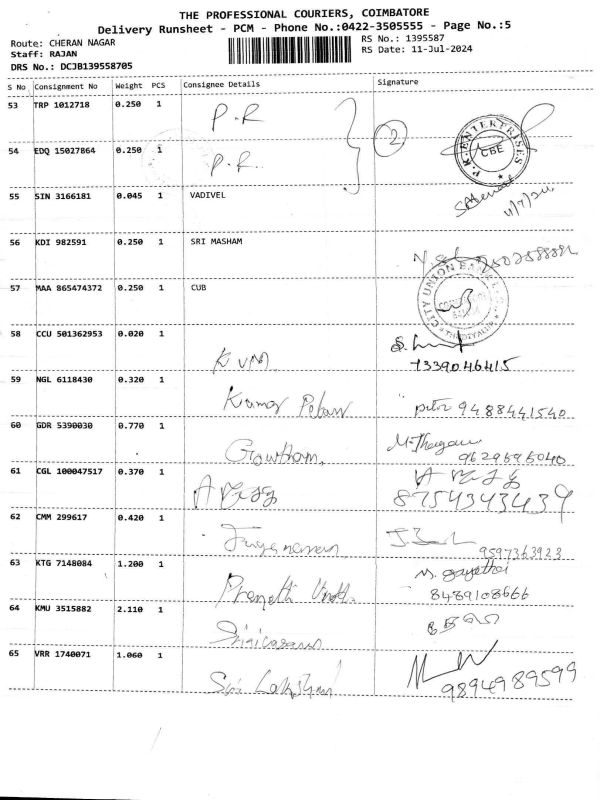 THE PROFESSIONAL COURIERS, COIMBATORE
Delivery Runsheet - PCM - Phone No.:0422-3505555 - Page No.:5
Route: CHERAN NAGAR
RS No.: 1395587
Staff: RAJAN
RS Date: 11-Jul-2024
DRS No.: DCJB139558705
S No Consignment No Weight PCS Consignee Details Signature
53 TRP 1012718 0.250 1 P.R
2
P.K. ENTERPRISES CBE
54 EDQ 15027864 0.250 1 P.R.
55 SIN 3166181 0.045 1 VADIVEL
11/7/24
56 KDI 982591 0.250 1 SRI MASHAM
57 MAA 865474372 0.250 1 CUB
CITY UNION BANK
58 CCU 501362953 0.020 1 KVM
7339046415
59 NGL 6118430 0.320 1 Kumar
9488441540
60 GDR 5390030 0.770 1 Gowtham.
9629696040
61 CGL 100047517 0.370 1
8754343439
62 CMM 299617 0.420 1
9597363923
63 KTG 7148084 1.200 1
M. Gayathri
8489108666
64 KMU 3515882 2.110 1
65 VRR 1740071 1.060 1 Sri Lakshmi
9894989599